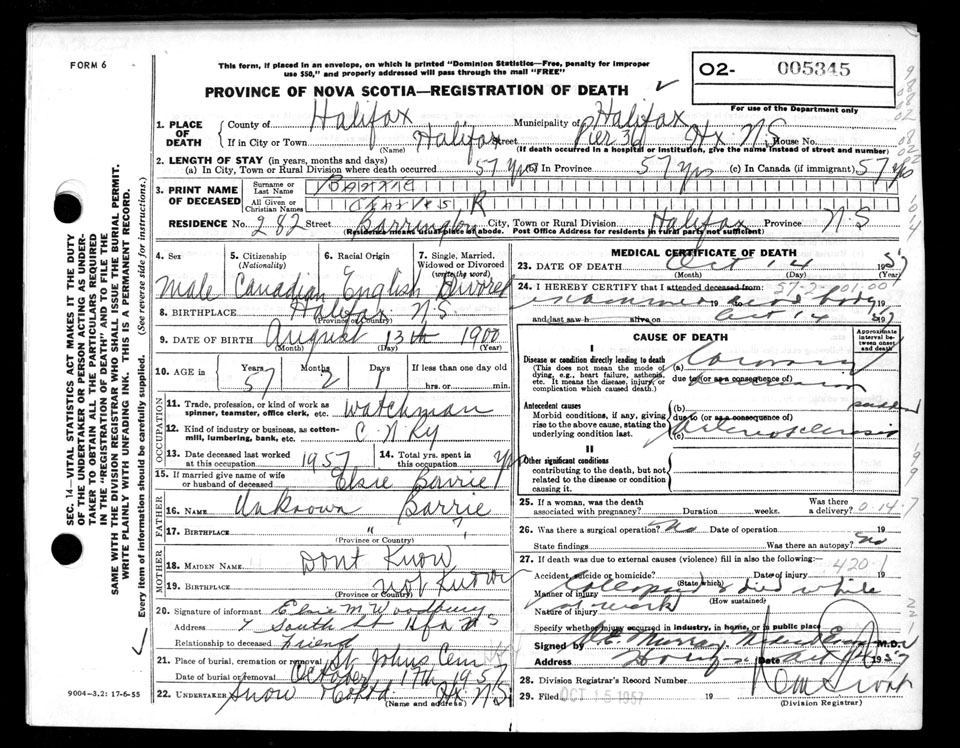 FORM 6
This form, if placed in an envelope, on which is printed "Dominion Statistics—Free, penalty for improper
use $50," and properly addressed will pass through the mail "FREE"
PROVINCE OF NOVA SCOTIA—REGISTRATION OF DEATH
O2- 005345
For use of the Department only
1. PLACE OF DEATH
County of Halifax Municipality of Halifax
If in City or Town Halifax Street Pier 36 Hx. N.S. House No.
(Name) (If death occurred in a hospital or institution, give the name instead of street and number)
2. LENGTH OF STAY (in years, months and days)
(a) In City, Town or Rural Division where death occurred 57 yrs (b) In Province 57 yrs (c) In Canada (if immigrant) 57 yrs
3. PRINT NAME OF DECEASED
Surname or Last Name Barrie
All Given or Christian Names Charles R
RESIDENCE No. 282 Street Barrington City, Town or Rural Division Halifax Province N.S
(Residence means usual place of abode. Post Office Address for residents in rural parts not sufficient)
4. Sex 5. Citizenship (Nationality) 6. Racial Origin 7. Single, Married, Widowed or Divorced (write the word)
Male Canadian English Divorced
8. BIRTHPLACE Halifax N.S.
(Province or Country)
9. DATE OF BIRTH August 13th 1900
(Month) (Day) (Year)
10. AGE in Years 57 Months 2 Days 1 If less than one day old
hrs. or min.
OCCUPATION
11. Trade, profession, or kind of work as spinner, teamster, office clerk, etc. Watchman
12. Kind of industry or business, as cotton-mill, lumbering, bank, etc. C N Ry
13. Date deceased last worked at this occupation 1957 14. Total yrs. spent in this occupation yrs
15. If married give name of wife or husband of deceased Elsie Barrie
FATHER
16. NAME Unknown Barrie
17. BIRTHPLACE "
(Province or Country)
MOTHER
18. MAIDEN NAME Dont Know
19. BIRTHPLACE not Known
(Province or Country)
20. Signature of informant Elsie M Woodbury
Address 7 South St Hfx N S
Relationship to deceased Friend
21. Place of burial, cremation or removal St. Johns Cem
Date of burial or removal October 17th 1957
22. UNDERTAKER Snow & Co Ltd. Hx. N.S.
(Name and address)
9004-3.2: 17-6-55
MEDICAL CERTIFICATE OF DEATH
23. DATE OF DEATH Oct 14 1957
(Month) (Day) (Year)
24. I HEREBY CERTIFY that I attended deceased from: 57-2-01.00
examined body 19
and last saw h alive on Oct 14 1957
CAUSE OF DEATH
Approximate interval between onset and death
I
Disease or condition directly leading to death
(This does not mean the mode of dying, e.g., heart failure, asthenia, etc. It means the disease, injury, or complication which caused death.)
(a) Coronary
due to (or as a consequence of)
Antecedent causes
Morbid conditions, if any, giving rise to the above cause, stating the underlying condition last.
(b) sudden
due to (or as a consequence of)
(c) Arteriosclerosis
II
Other significant conditions
contributing to the death, but not related to the disease or condition causing it.
25. If a woman, was the death associated with pregnancy? Duration weeks. Was there a delivery? 0-14-7
26. Was there a surgical operation? No Date of operation 19
State findings Was there an autopsy? No
27. If death was due to external causes (violence) fill in also the following:
Accident, suicide or homicide? Date of injury 420.1
(State which)
Manner of injury Collapsed & died while
(How sustained)
Nature of injury at work
Specify whether injury occurred in industry, in home, or in public place
Signed by Murray Medical Examiner M.D.
Address Halifax Date Oct 1957
28. Division Registrar's Record Number
29. Filed OCT 15 1957 19
(Division Registrar)
SEC. 14—VITAL STATISTICS ACT MAKES IT THE DUTY
OF THE UNDERTAKER OR PERSON ACTING AS UNDER-
TAKER TO OBTAIN ALL THE PARTICULARS REQUIRED
IN THE "REGISTRATION OF DEATH" AND TO FILE THE
SAME WITH THE DIVISION REGISTRAR WHO SHALL ISSUE THE BURIAL PERMIT.
WRITE PLAINLY WITH UNFADING INK. THIS IS A PERMANENT RECORD.
Every item of information should be carefully supplied. (See reverse side for instructions.)